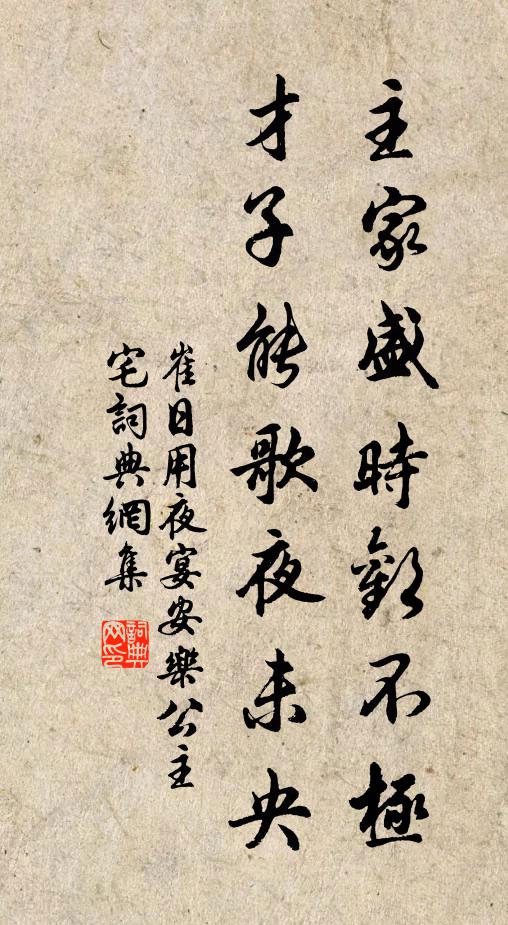 主家盛時歡不極
才子能歌夜未央
崔日用夜宴安樂公主
宅詞典網集
詞典網印